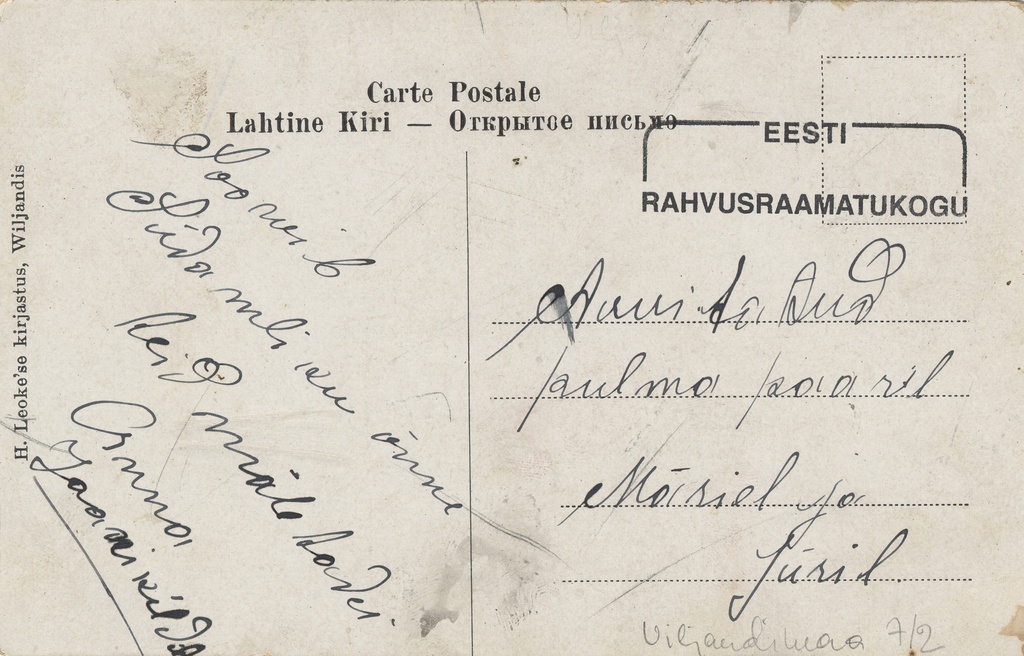 Carte Postale
Lahtine Kiri — Открытое письмо
EESTI
RAHVUSRAAMATUKOGU
H. Leoke'se kirjastus, Wiljandis
Soovib
Südamliku õnne
Teid mäletades
Anna
Jaanikild
Auvustatud
pulma paaril
Mariel ja
Jüril.
Viljandimaa 7/2